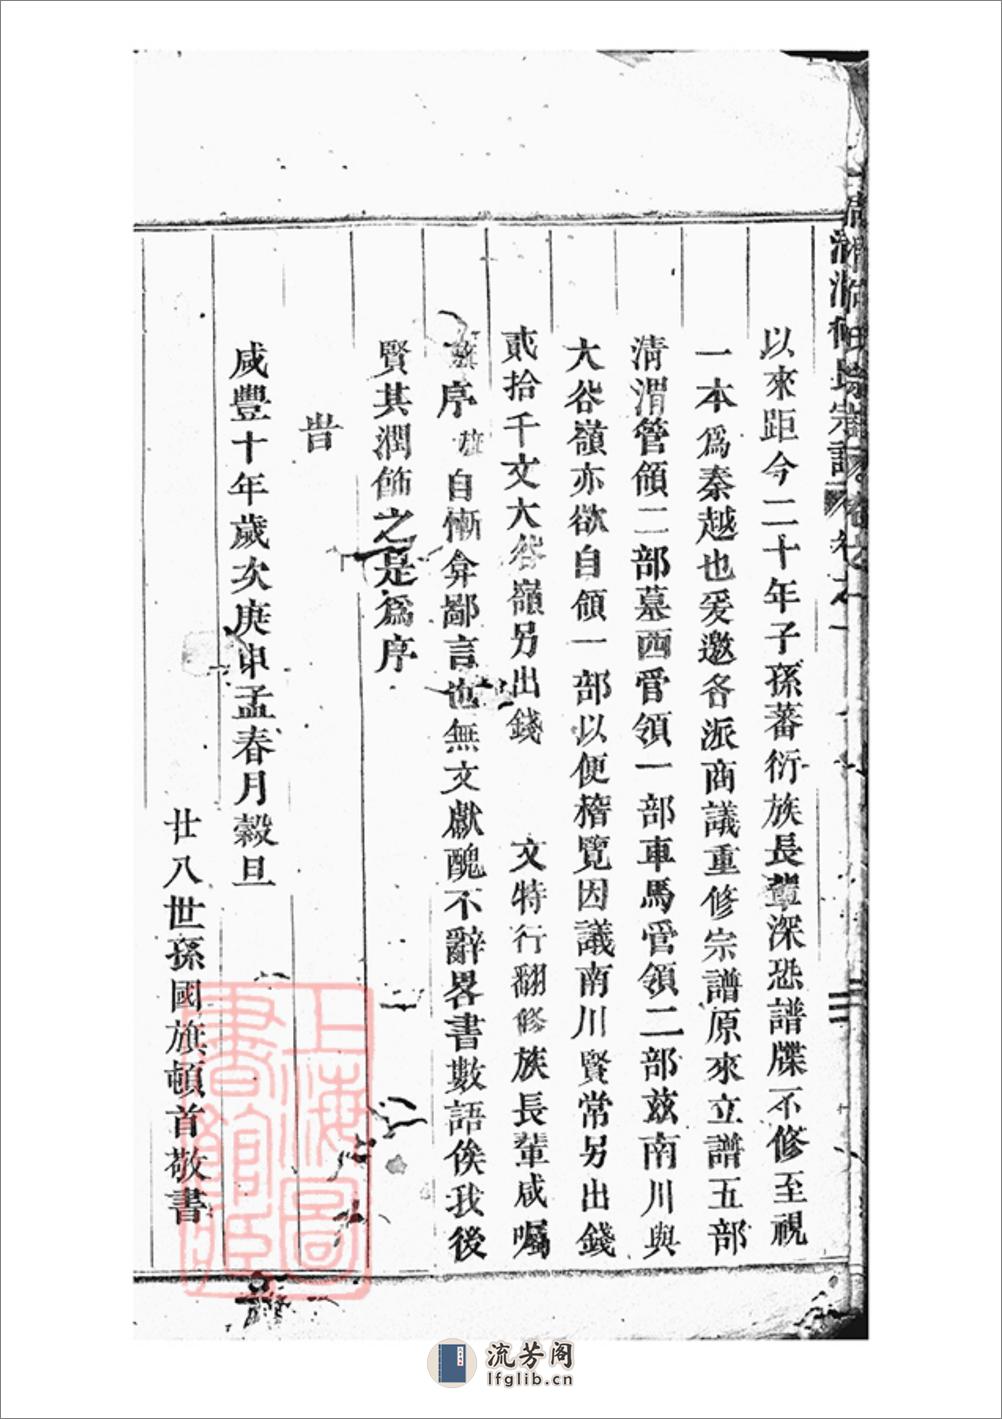 宗譜
卷之一
三
以來距今二十年子孫蕃衍族長輩深恐譜牒不修至視
一本爲秦越也爰邀各派商議重修宗譜原來立譜五部
清渭管領二部墓西管領一部車馬管領二部茲南川與
大谷嶺亦欲自領一部以便稽覽因議南川賢常另出錢
貳拾千文大谷嶺另出錢 文特行翻修族長輩咸囑
旗序旗自慚弇鄙言也無文獻醜不辭畧書數語俟我後
賢其潤飾之是爲序
旹
咸豐十年歲次庚申孟春月穀旦
廿八世孫國旗頓首敬書
上海圖書館藏
流芳阁
lfglib.cn